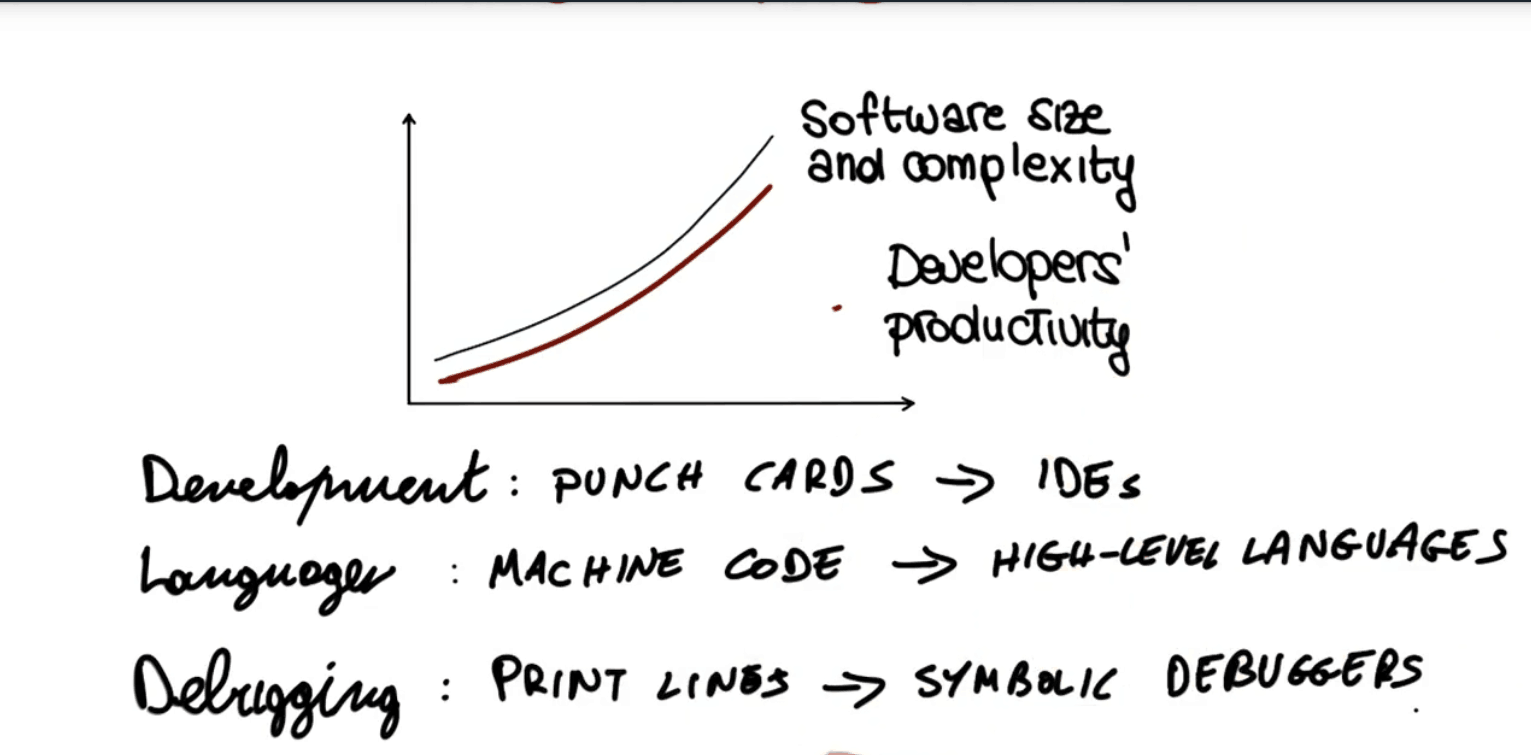 Software size
and complexity
Developers'
productivity
Development : PUNCH CARDS → IDEs
Languages : MACHINE CODE → HIGH-LEVEL LANGUAGES
Debugging : PRINT LINES → SYMBOLIC DEBUGGERS